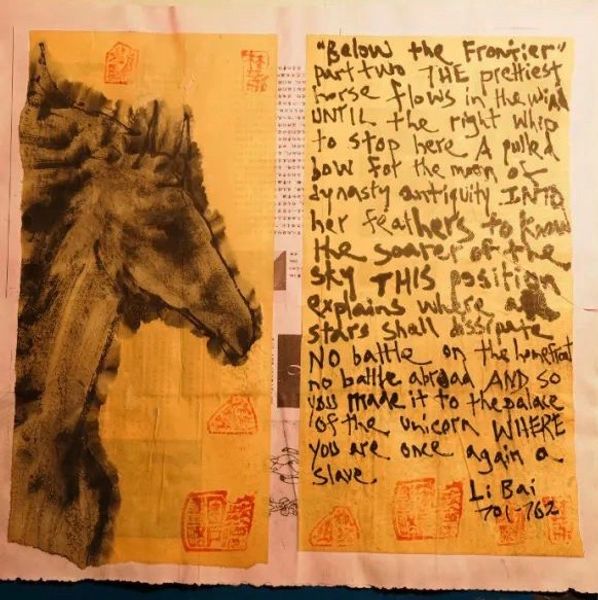 "Below the Frontier"
part two THE prettiest
horse flows in the wind
UNTIL the right whip
to stop here A pulled
bow for the moon of
dynasty antiquity INTO
her feathers to know
the soarer of the
sky THIS position
explains where all
stars shall dissipate
NO battle on the homefront
no battle abroad AND SO
you made it to the palace
of the unicorn WHERE
you are once again a
slave
Li Bai
701-762